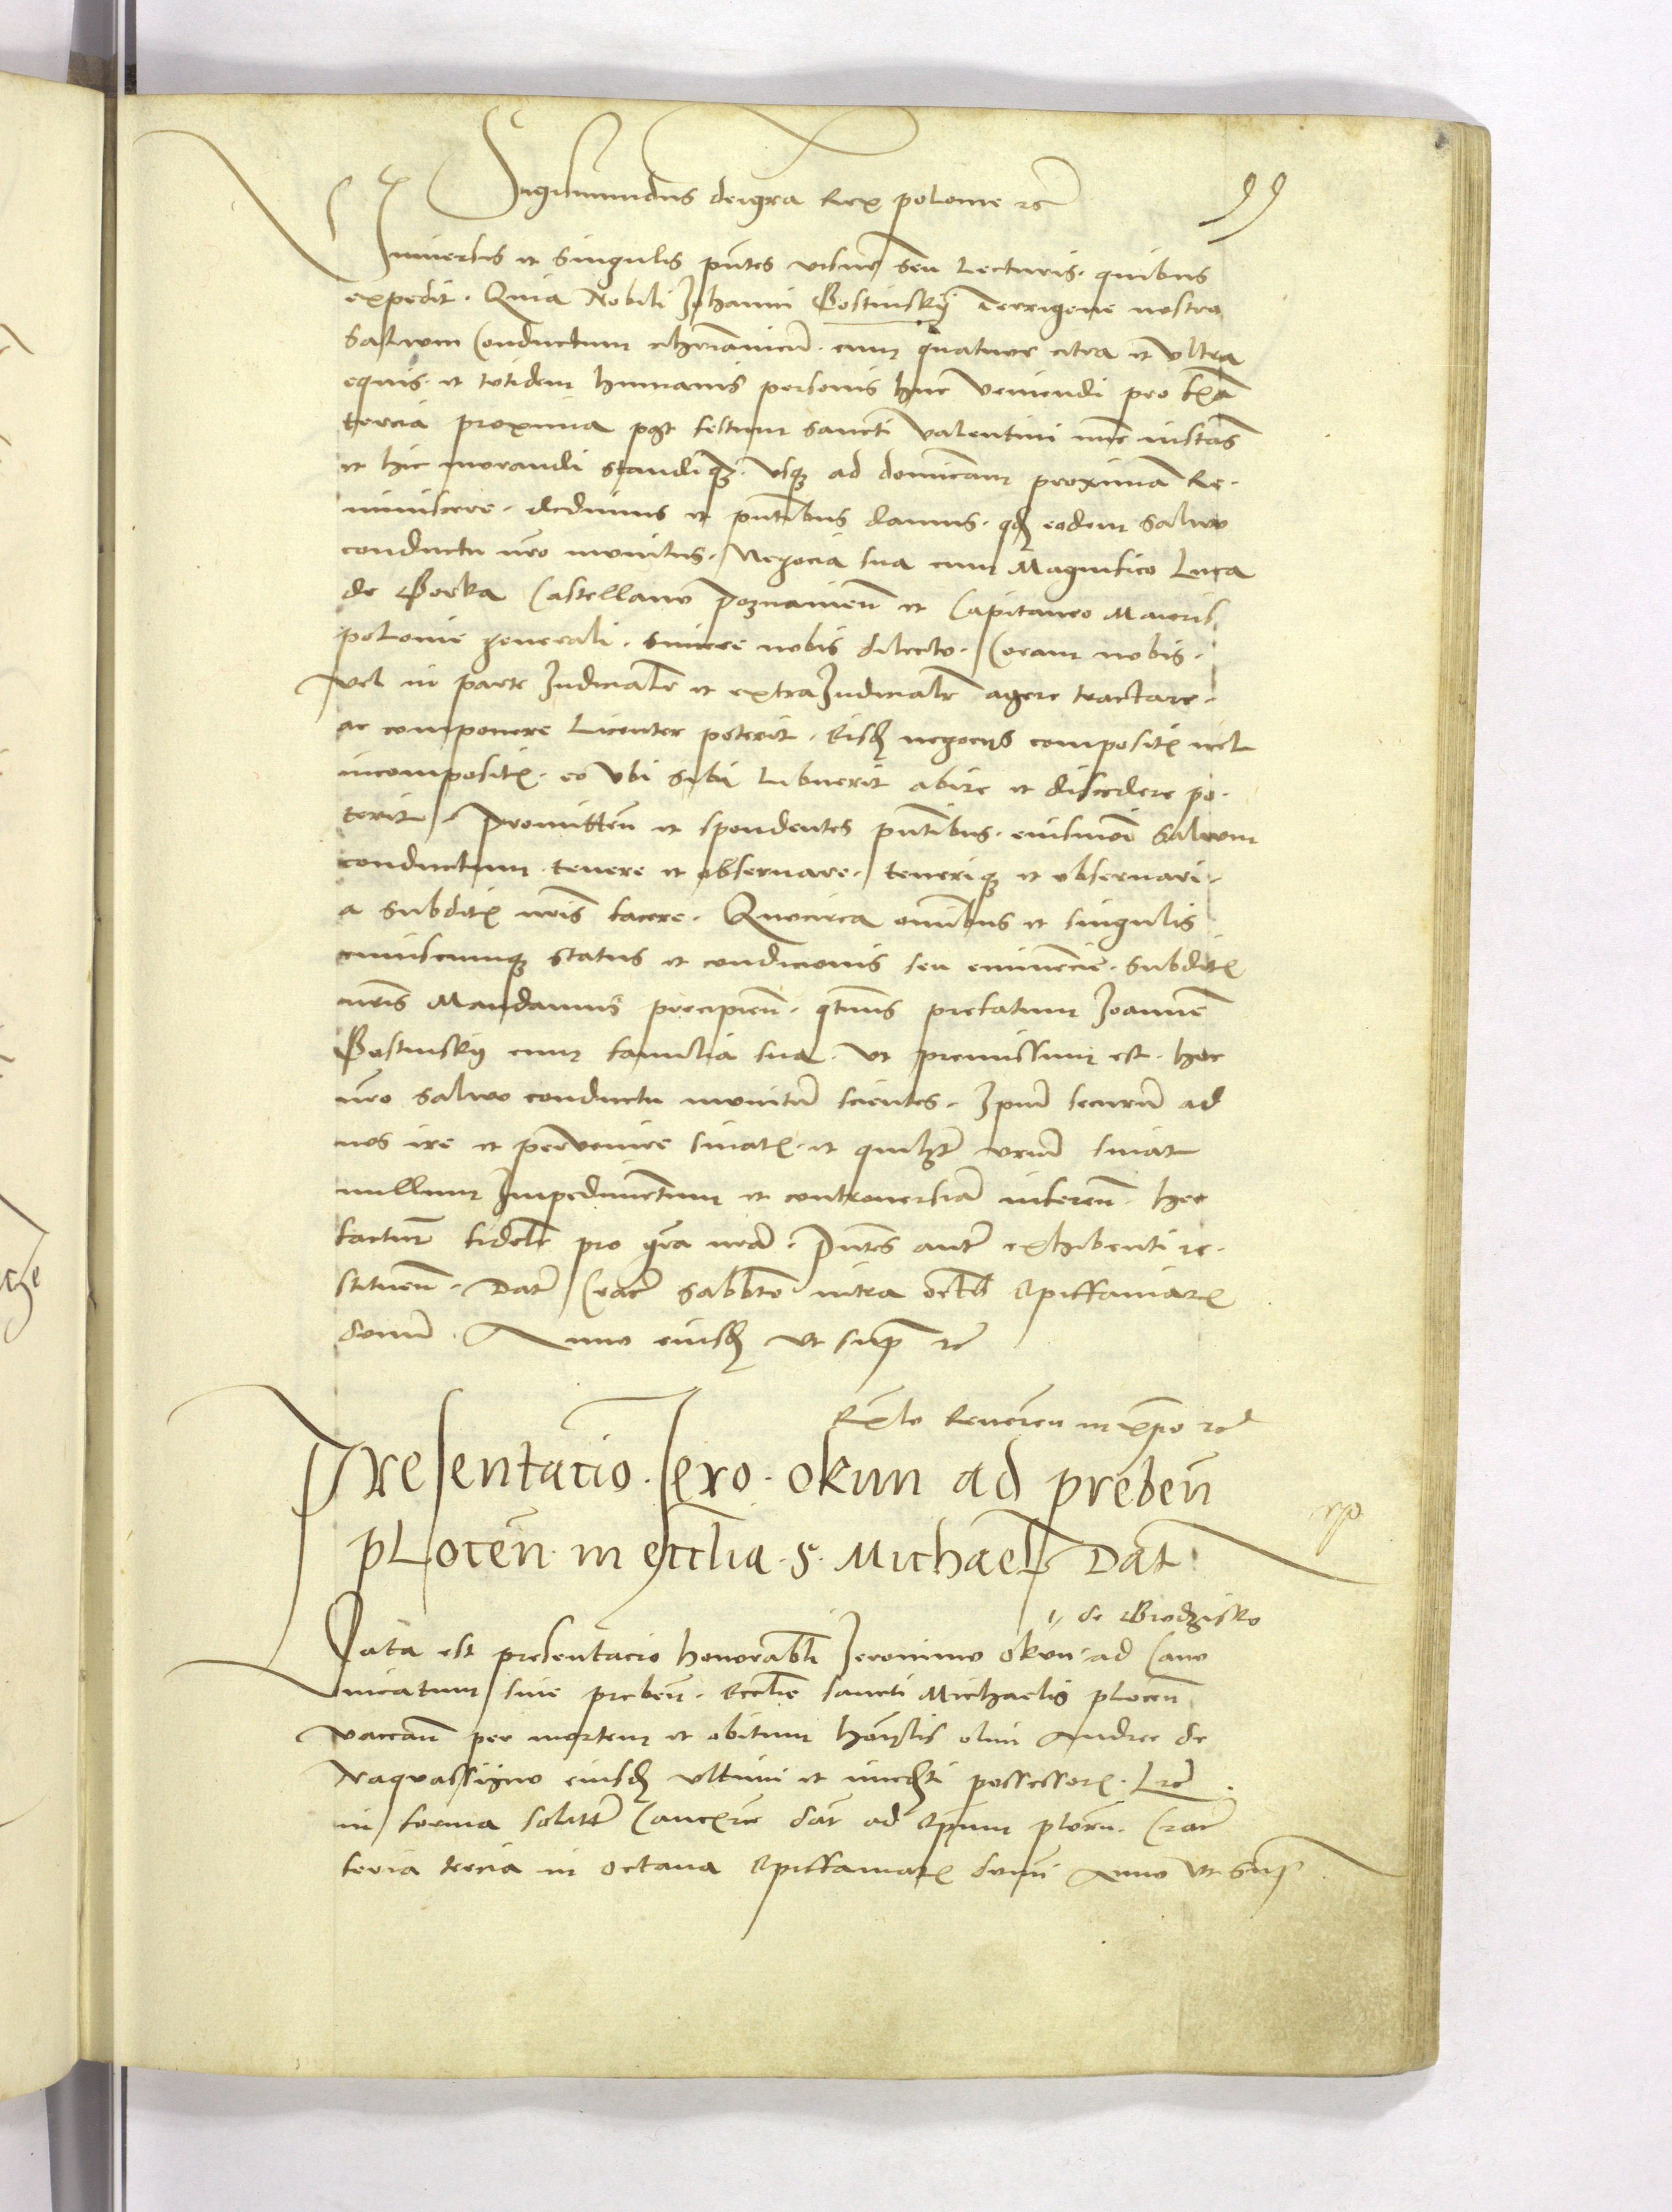 Sigismundus dei gra Rex polonie rc
99
Universis et Singulis pntes visur Seu Lecturis. quibus
expedit. Quia Nobili Johanni Gostinskÿ Terrigene nostro
Salvum Conductum chrianicu. cum quatuor citra et Ultra
equis et totidem humanis personis huc veniendi pro fia
tercia proxima post festum Sancti Valentini nunc instans
et hic morandi standiqz. Usqz ad dominicam proxima Re-
miniscere. dedimus et pntibus damus. qd eodem salvo
conductu nro munitus. Negocia sua cum Magnifico Luca
de Gorka Castellano Poznanien et Capitaneo Maioris
polonie generali. sincere nobis dilecto. Coram nobis.
vel in parte Judicialr et extraJudicialr agere tractare.
ac componere Licenter poterit. Eisd negocys composit vel
incomposit. eo Ubi Sibi lubuerit abire et discedere po-
terit. Promitten et spondentes pntibus. eiusmoi Salvum
conductum tenere et observare. teneriqz et observari.
a Subdit nris facere. Quocirca omnibus et singulis
cuiuscumqz Status et condicionis seu eminencie. Subdit
nris Mandamus precipien. qtnus prefatum Joannem
Gostinsky cum familia sua. Ut premissum est. hoc
nro Salvo conductu munitu scientes. Ipsum securu ad
nos ire et pervenire sinat. et quilzt vrum sinat
nullum Impedimentum et controversia inferen. hoc
factur fidelr pro gra nra. Pntes autem exhibenti re-
stituen. Dat Crac Sabbto infra octa Epiffaniar
domi. Anno eiusd Ut Supra rc
Rlo Reveren in xpo rc
Presentacio. Jero. okun ad preben
pLocen. in ecclia. S. Michael Dat
de Grodzisko
Data est presentacio honorabli Jeronimo okun ad Cano
nicatum sive preben. Ecclie sancti Michaelis plocen
vaccan per mortem et obitum honlis olim Andree de
Naquassyno eiusd ultimi et imediti possessor. Lre
in forma solit Cancrie dat ad Epum plocen. Crac
feria tercia in octava Epiffaniar domi Anno Ut Sup